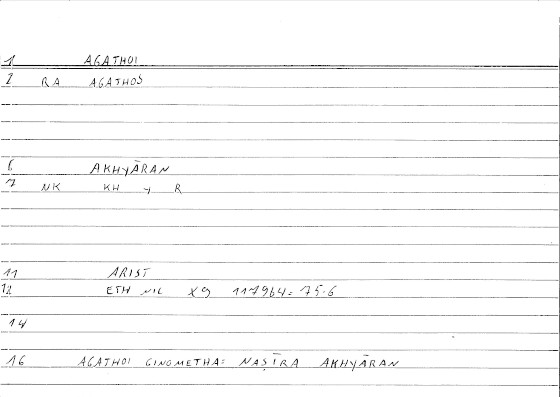 1 AGATHOI
2 RA AGATHOS
6 AKHYĀRAN
7 NK KH Y R
11 ARIST
12 ETH NIC X9 1179b4=75.6
14
16 AGATHOI GINOMETHA= NAṢĪRA AKHYĀRAN